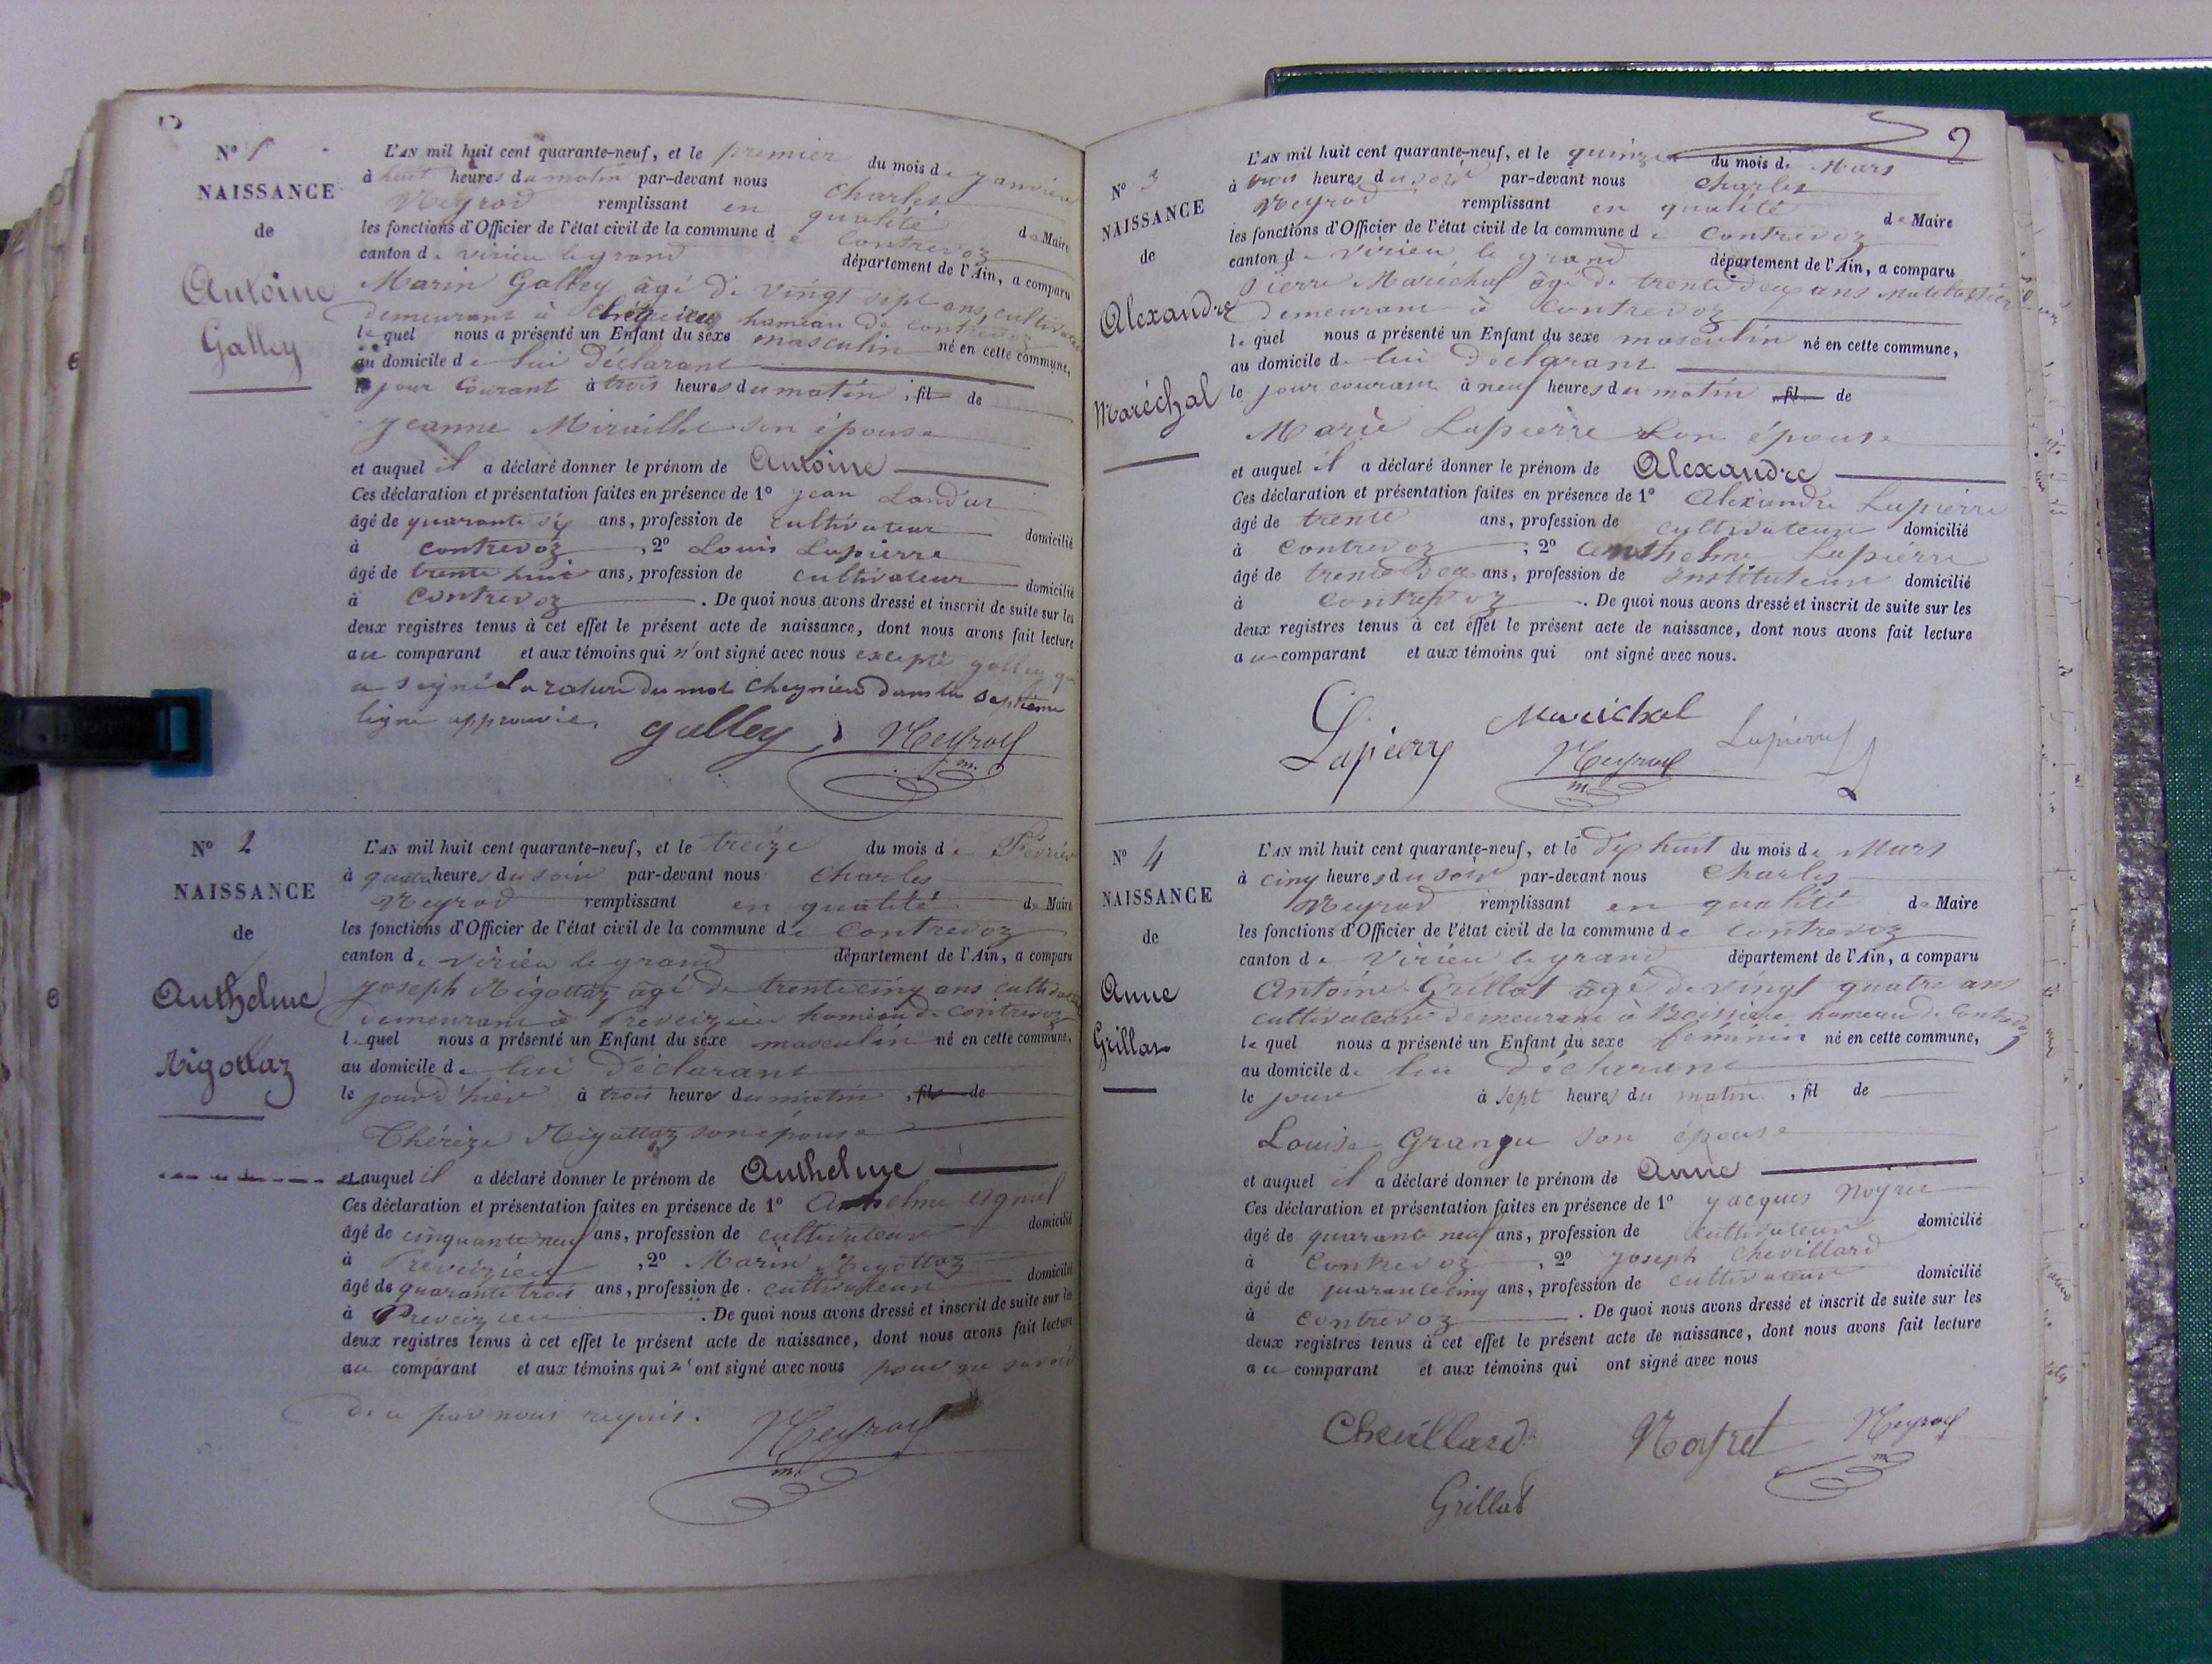 N° 1
NAISSANCE
de
Antoine
Galley
L'AN mil huit cent quarante-neuf, et le premier du mois de janvier
à huit heures du matin par-devant nous Charles
Neyrod remplissant en qualité de Maire
les fonctions d'Officier de l'état civil de la commune de Contrevoz
canton de virieu le grand département de l'Ain, a comparu
Marin Galley âgé de vingt sept ans, cultivateur
demeurant à hameau de Contrevoz
lequel nous a présenté un Enfant du sexe masculin né en cette commune,
au domicile de lui déclarant
le jour courant à trois heures du matin, fil de
Jeanne son épouse
et auquel il a déclaré donner le prénom de Antoine
Ces déclaration et présentation faites en présence de 1° jean
âgé de quarante six ans, profession de cultivateur domicilié
à Contrevoz, 2° Louis Lapierre
âgé de trente huit ans, profession de cultivateur domicilié
à Contrevoz. De quoi nous avons dressé et inscrit de suite sur les
deux registres tenus à cet effet le présent acte de naissance, dont nous avons fait lecture
au comparant et aux témoins qui n'ont signé avec nous excepté galley qui
a signé la rature du mot Cheynieu dans la septième
ligne approuvée.
galley Neyrod
m.
N° 2
NAISSANCE
de
Anthelme
Rigottaz
L'AN mil huit cent quarante-neuf, et le treize du mois de Février
à quatre heures du soir par-devant nous Charles
Neyrod remplissant en qualité de Maire
les fonctions d'Officier de l'état civil de la commune de Contrevoz
canton de virieu le grand département de l'Ain, a comparu
joseph Rigottaz âgé de trente cinq ans cultivateur
demeurant à Preveizieu hameau de Contrevoz
lequel nous a présenté un Enfant du sexe masculin né en cette commune,
au domicile de lui déclarant
le jour d'hier à trois heures du matin, fil de
Thérèze Rigottaz son épouse
et auquel il a déclaré donner le prénom de Anthelme
Ces déclaration et présentation faites en présence de 1° Anthelme
âgé de cinquante neuf ans, profession de cultivateur domicilié
à Preveizieu, 2° Marin Rigottaz
âgé de quarante trois ans, profession de cultivateur domicilié
à Preveizieu. De quoi nous avons dressé et inscrit de suite sur les
deux registres tenus à cet effet le présent acte de naissance, dont nous avons fait lecture
au comparant et aux témoins qui n'ont signé avec nous pour ne savoir
de ce par nous requis.
Neyrod
m.
2
N° 3
NAISSANCE
de
Alexandre
Maréchal
L'AN mil huit cent quarante-neuf, et le quinze du mois de Mars
à trois heures du soir par-devant nous Charles
Neyrod remplissant en qualité de Maire
les fonctions d'Officier de l'état civil de la commune de Contrevoz
canton de virieu le grand département de l'Ain, a comparu
Pierre Maréchal âgé de trente deux ans Matelassier
demeurant à Contrevoz
lequel nous a présenté un Enfant du sexe masculin né en cette commune,
au domicile de lui déclarant
le jour courant à neuf heures du matin fil de
Marie Lapierre son épouse
et auquel il a déclaré donner le prénom de Alexandre
Ces déclaration et présentation faites en présence de 1° Alexandre Lapierre
âgé de trente ans, profession de cultivateur domicilié
à Contrevoz; 2° Anthelme Lapierre
âgé de trente deux ans, profession de instituteur domicilié
à Contrevoz. De quoi nous avons dressé et inscrit de suite sur les
deux registres tenus à cet effet le présent acte de naissance, dont nous avons fait lecture
au comparant et aux témoins qui ont signé avec nous.
Lapierre Marichal Lapierre
Neyrod
m.
N° 4
NAISSANCE
de
Anne
Grillat
L'AN mil huit cent quarante-neuf, et le dix huit du mois de Mars
à cinq heures du soir par-devant nous Charles
Neyrod remplissant en qualité de Maire
les fonctions d'Officier de l'état civil de la commune de Contrevoz
canton de Virieu le grand département de l'Ain, a comparu
Antoine Grillat âgé de vingt quatre ans
cultivateur demeurant à Boissieu hameau de Contrevoz
lequel nous a présenté un Enfant du sexe féminin né en cette commune,
au domicile de lui déclarant
le jour à sept heures du matin, fil de
Louise son épouse
et auquel il a déclaré donner le prénom de Anne
Ces déclaration et présentation faites en présence de 1° jacques Noyret
âgé de quarante neuf ans, profession de cultivateur domicilié
à Contrevoz, 2° joseph Chevillard
âgé de quarante cinq ans, profession de cultivateur domicilié
à Contrevoz. De quoi nous avons dressé et inscrit de suite sur les
deux registres tenus à cet effet le présent acte de naissance, dont nous avons fait lecture
au comparant et aux témoins qui ont signé avec nous
Chevillard Noyret Neyrod
m
Grillat